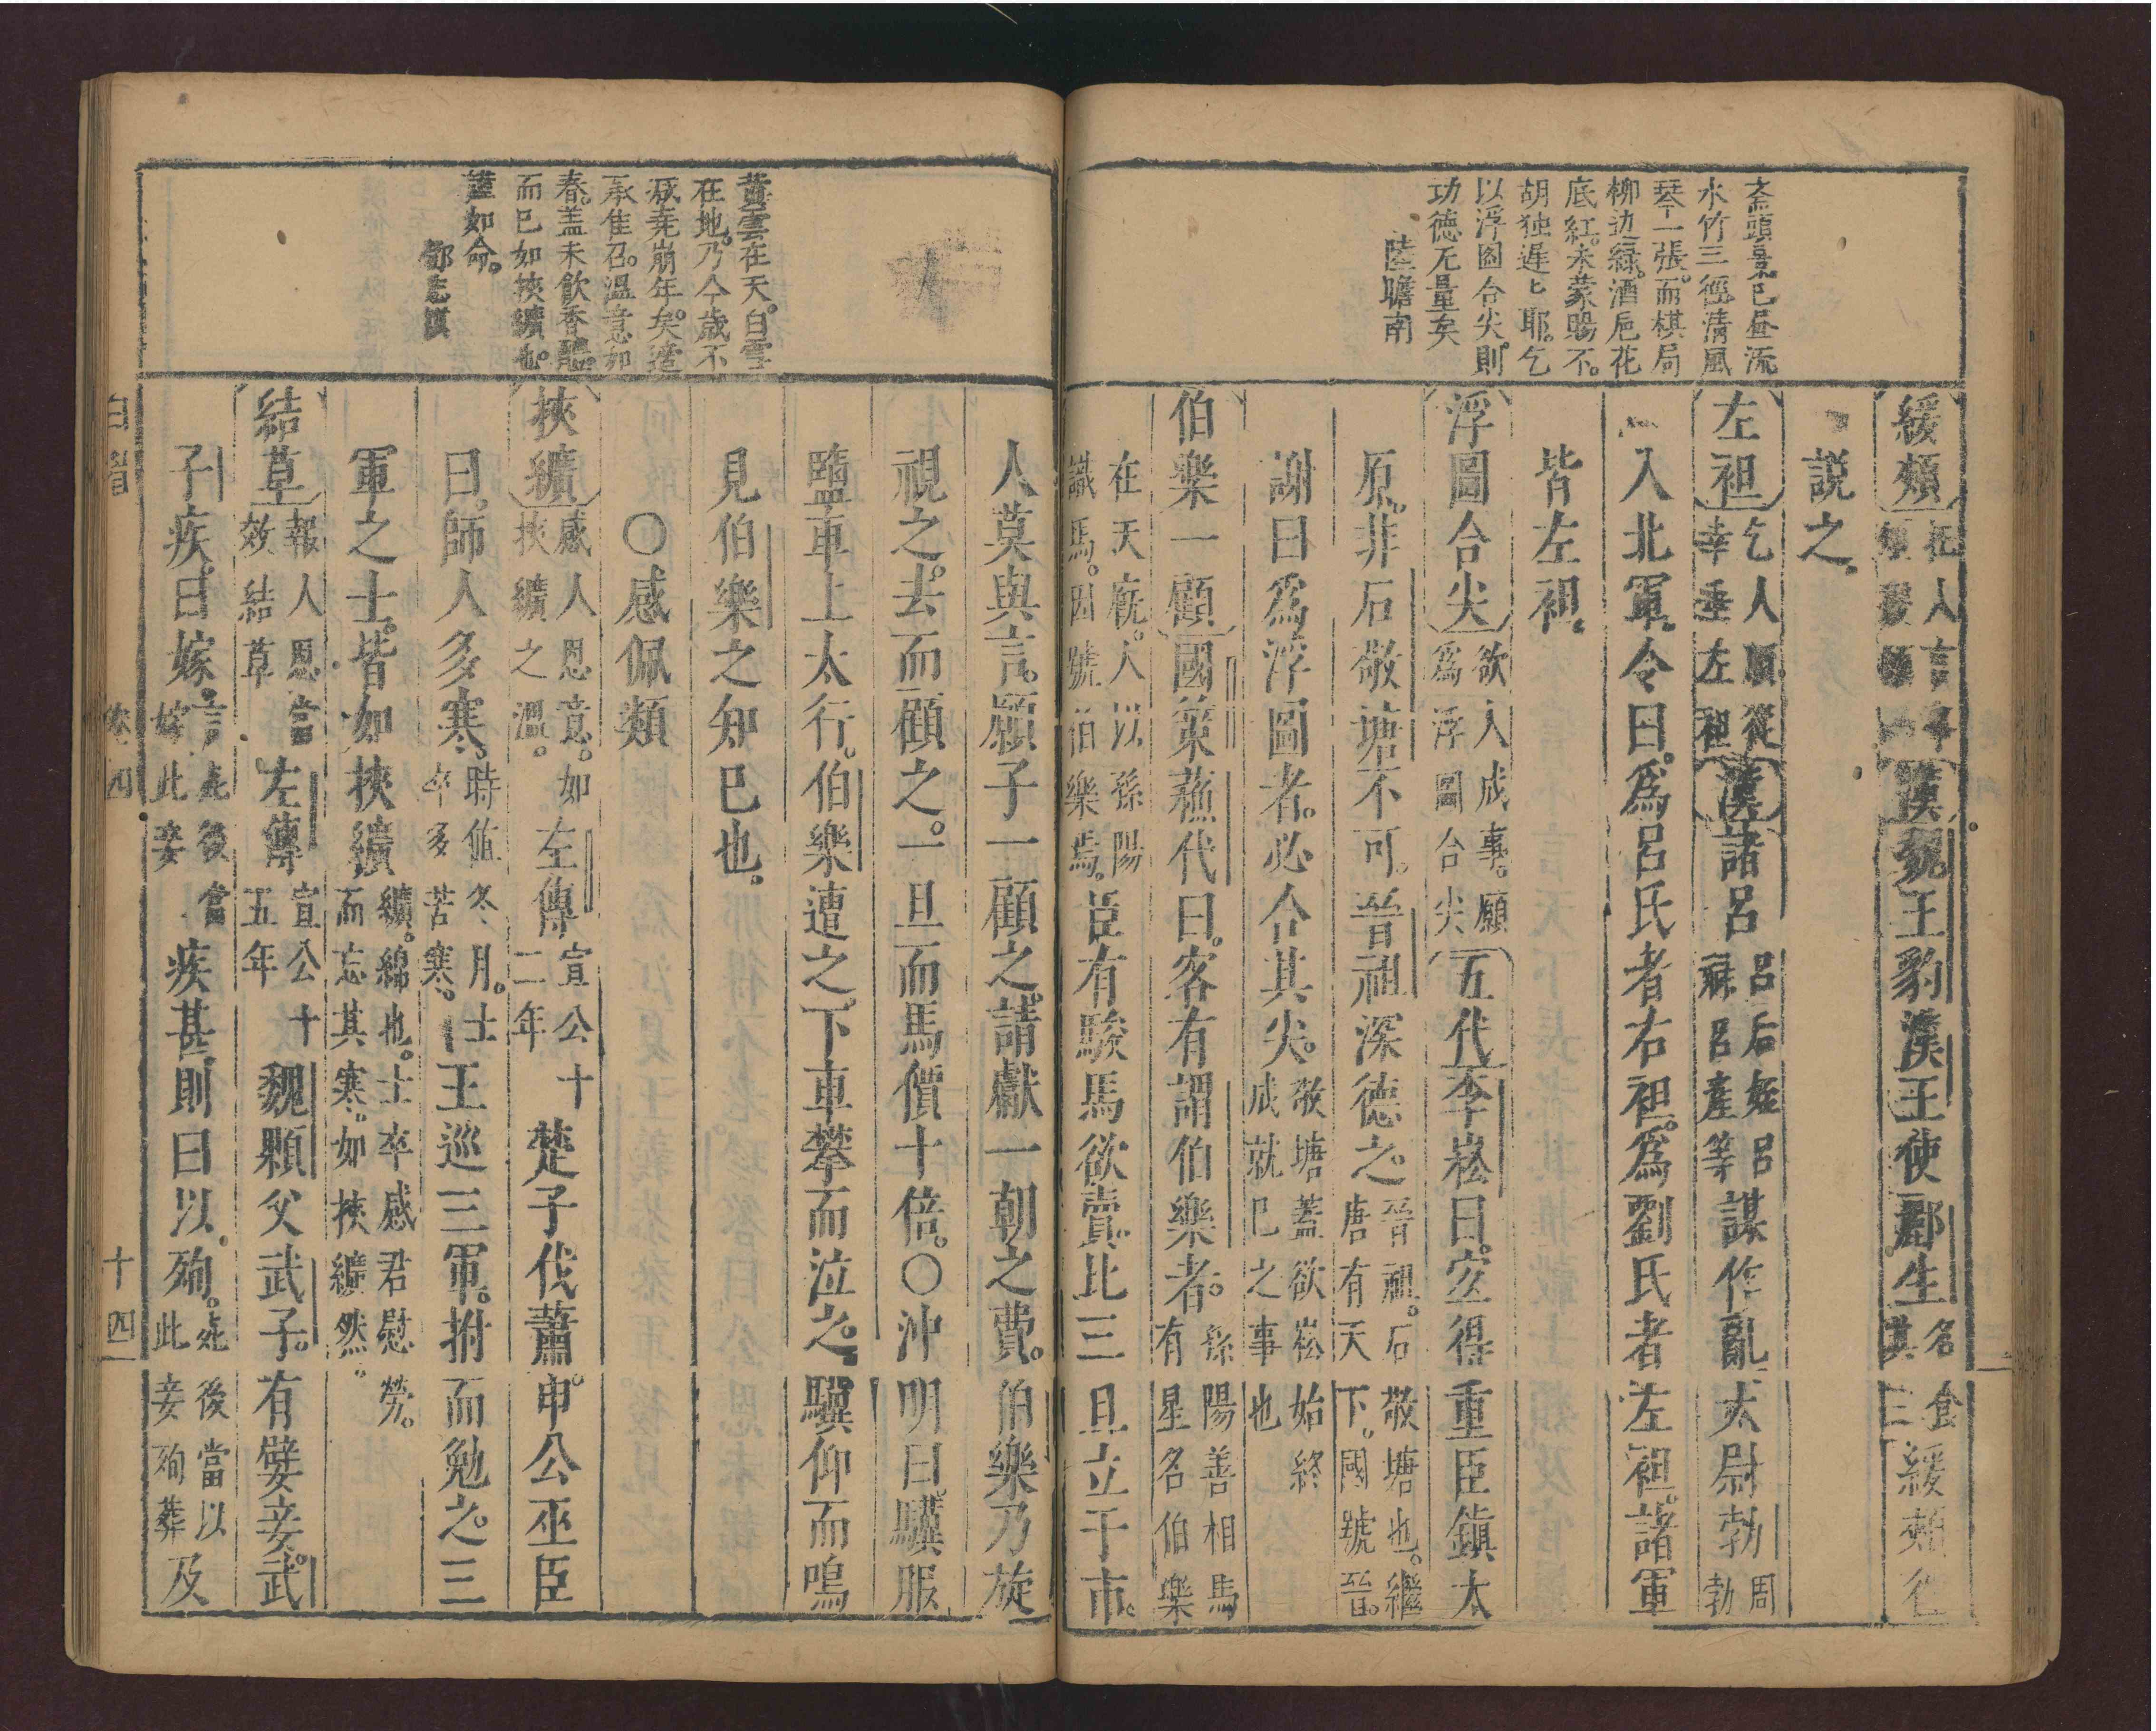 斎頭景已昼流
水竹三徑清風
琴一張。而棋局
柳边緑。酒巵花
底紅。未蒙賜不。
胡独遲〻耶。乞
以浮圖合尖。則
功德无量矣
陸瞻南
緩頰 漢魏王豹漢王使酈生名食其三緩頰往
説之。
左袒乞人順從幸垂左袒漢諸呂呂后姪呂祿呂產等謀作亂太尉勃周勃
入北軍。令曰。爲呂氏者右袒。爲劉氏者左袒。諸軍
皆左袒。
浮圖合尖欲人成事。願爲浮圖合尖五代李崧曰。宻得重臣鎮太
原。非石敬塘不可。晉祖深德之。晉祖。石敬塘也。繼唐有天下。國號晉。
謝曰爲浮圖者。必合其尖。敬塘蓋欲崧始終成就已之事也
伯樂一顧國策蘓代曰。客有謂伯樂者。孫陽善相馬有星名伯樂
在天厩。人以孫陽識馬。因號伯樂焉。臣有駿馬欲賣。比三旦立于市。
黄雲在天。白雪
在地。乃今歲不
㽵堯崩年矣。遠
承隹召。溫意卻
春。盖未飲香醪。
而已如挾纊也。
謹如命。
鄧志謨
人莫與言。願子一顧之。請獻一朝之費。伯樂乃旋
視之。去而顧之。一旦而馬價十倍。〇沖明曰。驥服
鹽車上太行。伯樂遭之。下車攀而泣之。驥仰而鳴
見伯樂之知已也。
〇感佩類
挾纊感人恩意。如挾纊之溫。左傳宣公十二年楚子伐蕭。申公巫臣
曰。師人多寒。時值冬月。士卒多苦寒。王巡三軍。拊而勉之。三
軍之士。皆如挾纊纊。綿也。士卒感君慰勞。而忘其寒。如挾纊然。
結草報人恩當效結草左傳宣公十五年魏顆父武子。有嬖妾。武
子疾。曰嫁。言死後當嫁此妾疾甚則曰以殉。死後當以此妾殉葬及
卷四
十四